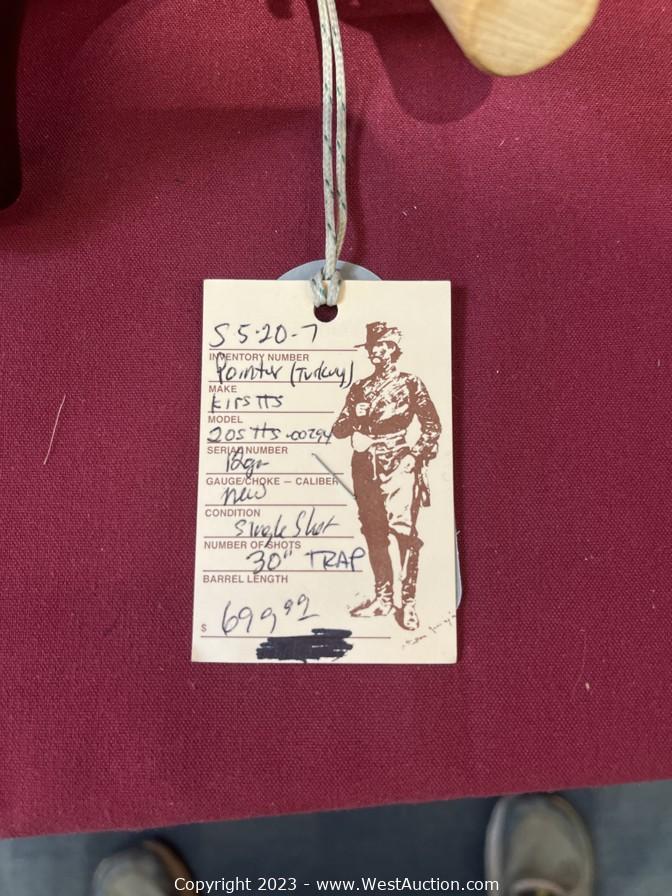 S 5-20-7
INVENTORY NUMBER
Pointer (Turkey)
MAKE
KIRSTTS
MODEL
20STTS-00294
SERIAL NUMBER
12ga
GAUGE/CHOKE — CALIBER
new
CONDITION
Single Shot
NUMBER OF SHOTS
30" TRAP
BARREL LENGTH
$ 699.99
Copyright 2023 - www.WestAuction.com